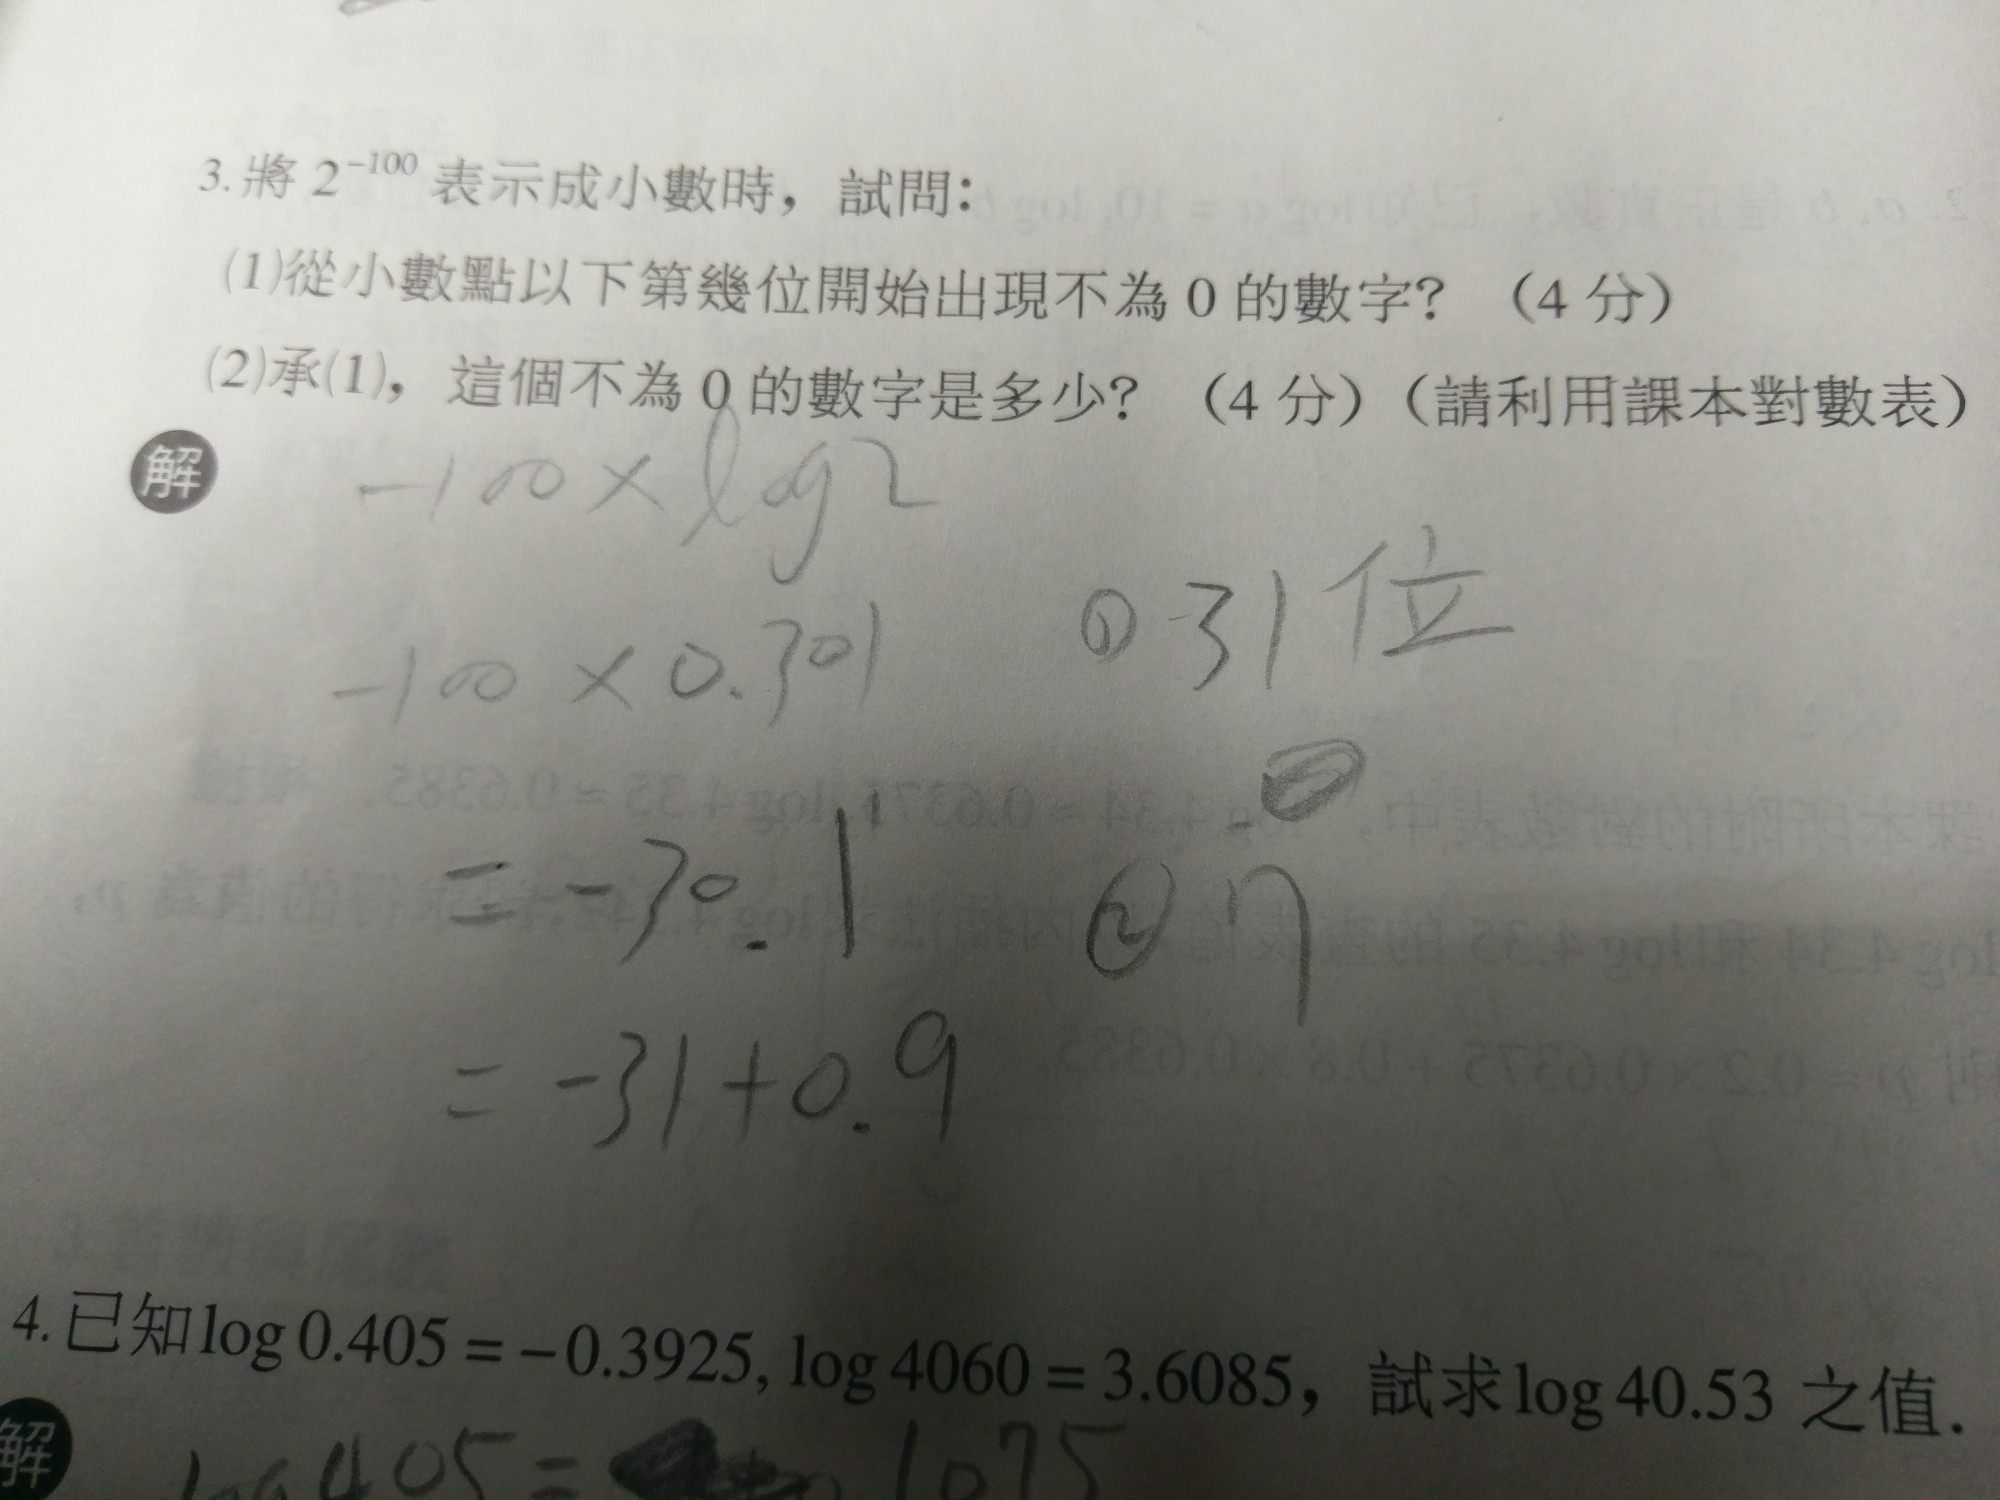 3.將 2⁻¹⁰⁰ 表示成小數時，試問：
(1)從小數點以下第幾位開始出現不為 0 的數字？（4 分）
(2)承(1)，這個不為 0 的數字是多少？（4 分）（請利用課本對數表）
解
-100 × log2
-100 × 0.301
① 31位
= -30.1
② 7
= -31+0.9
4.已知log 0.405 = −0.3925, log 4060 = 3.6085，試求log 40.53 之值.
解
log 405 =